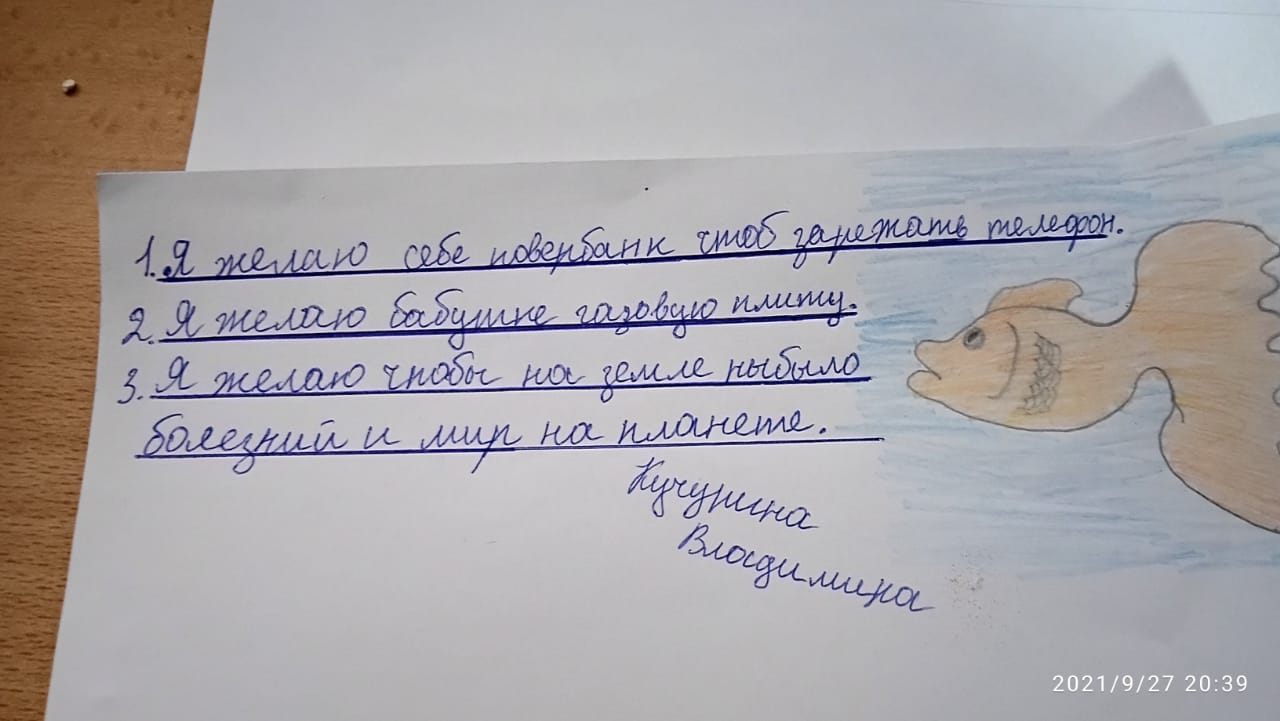 1. Я желаю себе повербанк чтоб зарежать телефон.
2. Я желаю бабушке газовую плиту.
3. Я желаю чтобы на земле ныбыло
болезний и мир на планете.
Кучурина
Владимира
2021/9/27 20:39